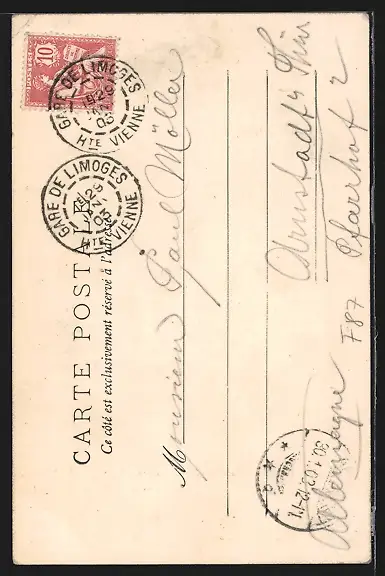 10
POSTES
GARE DE LIMOGES
29
JANV
03
HTE VIENNE
GARE DE LIMOGES
29
JANV
03
HTE VIENNE
CARTE POSTALE
Ce côté est exclusivement réservé à l'adresse
Monsieur Paul Möller
Arnstadt i/ Thür
Pfarrhof 2
F87
Allemagne